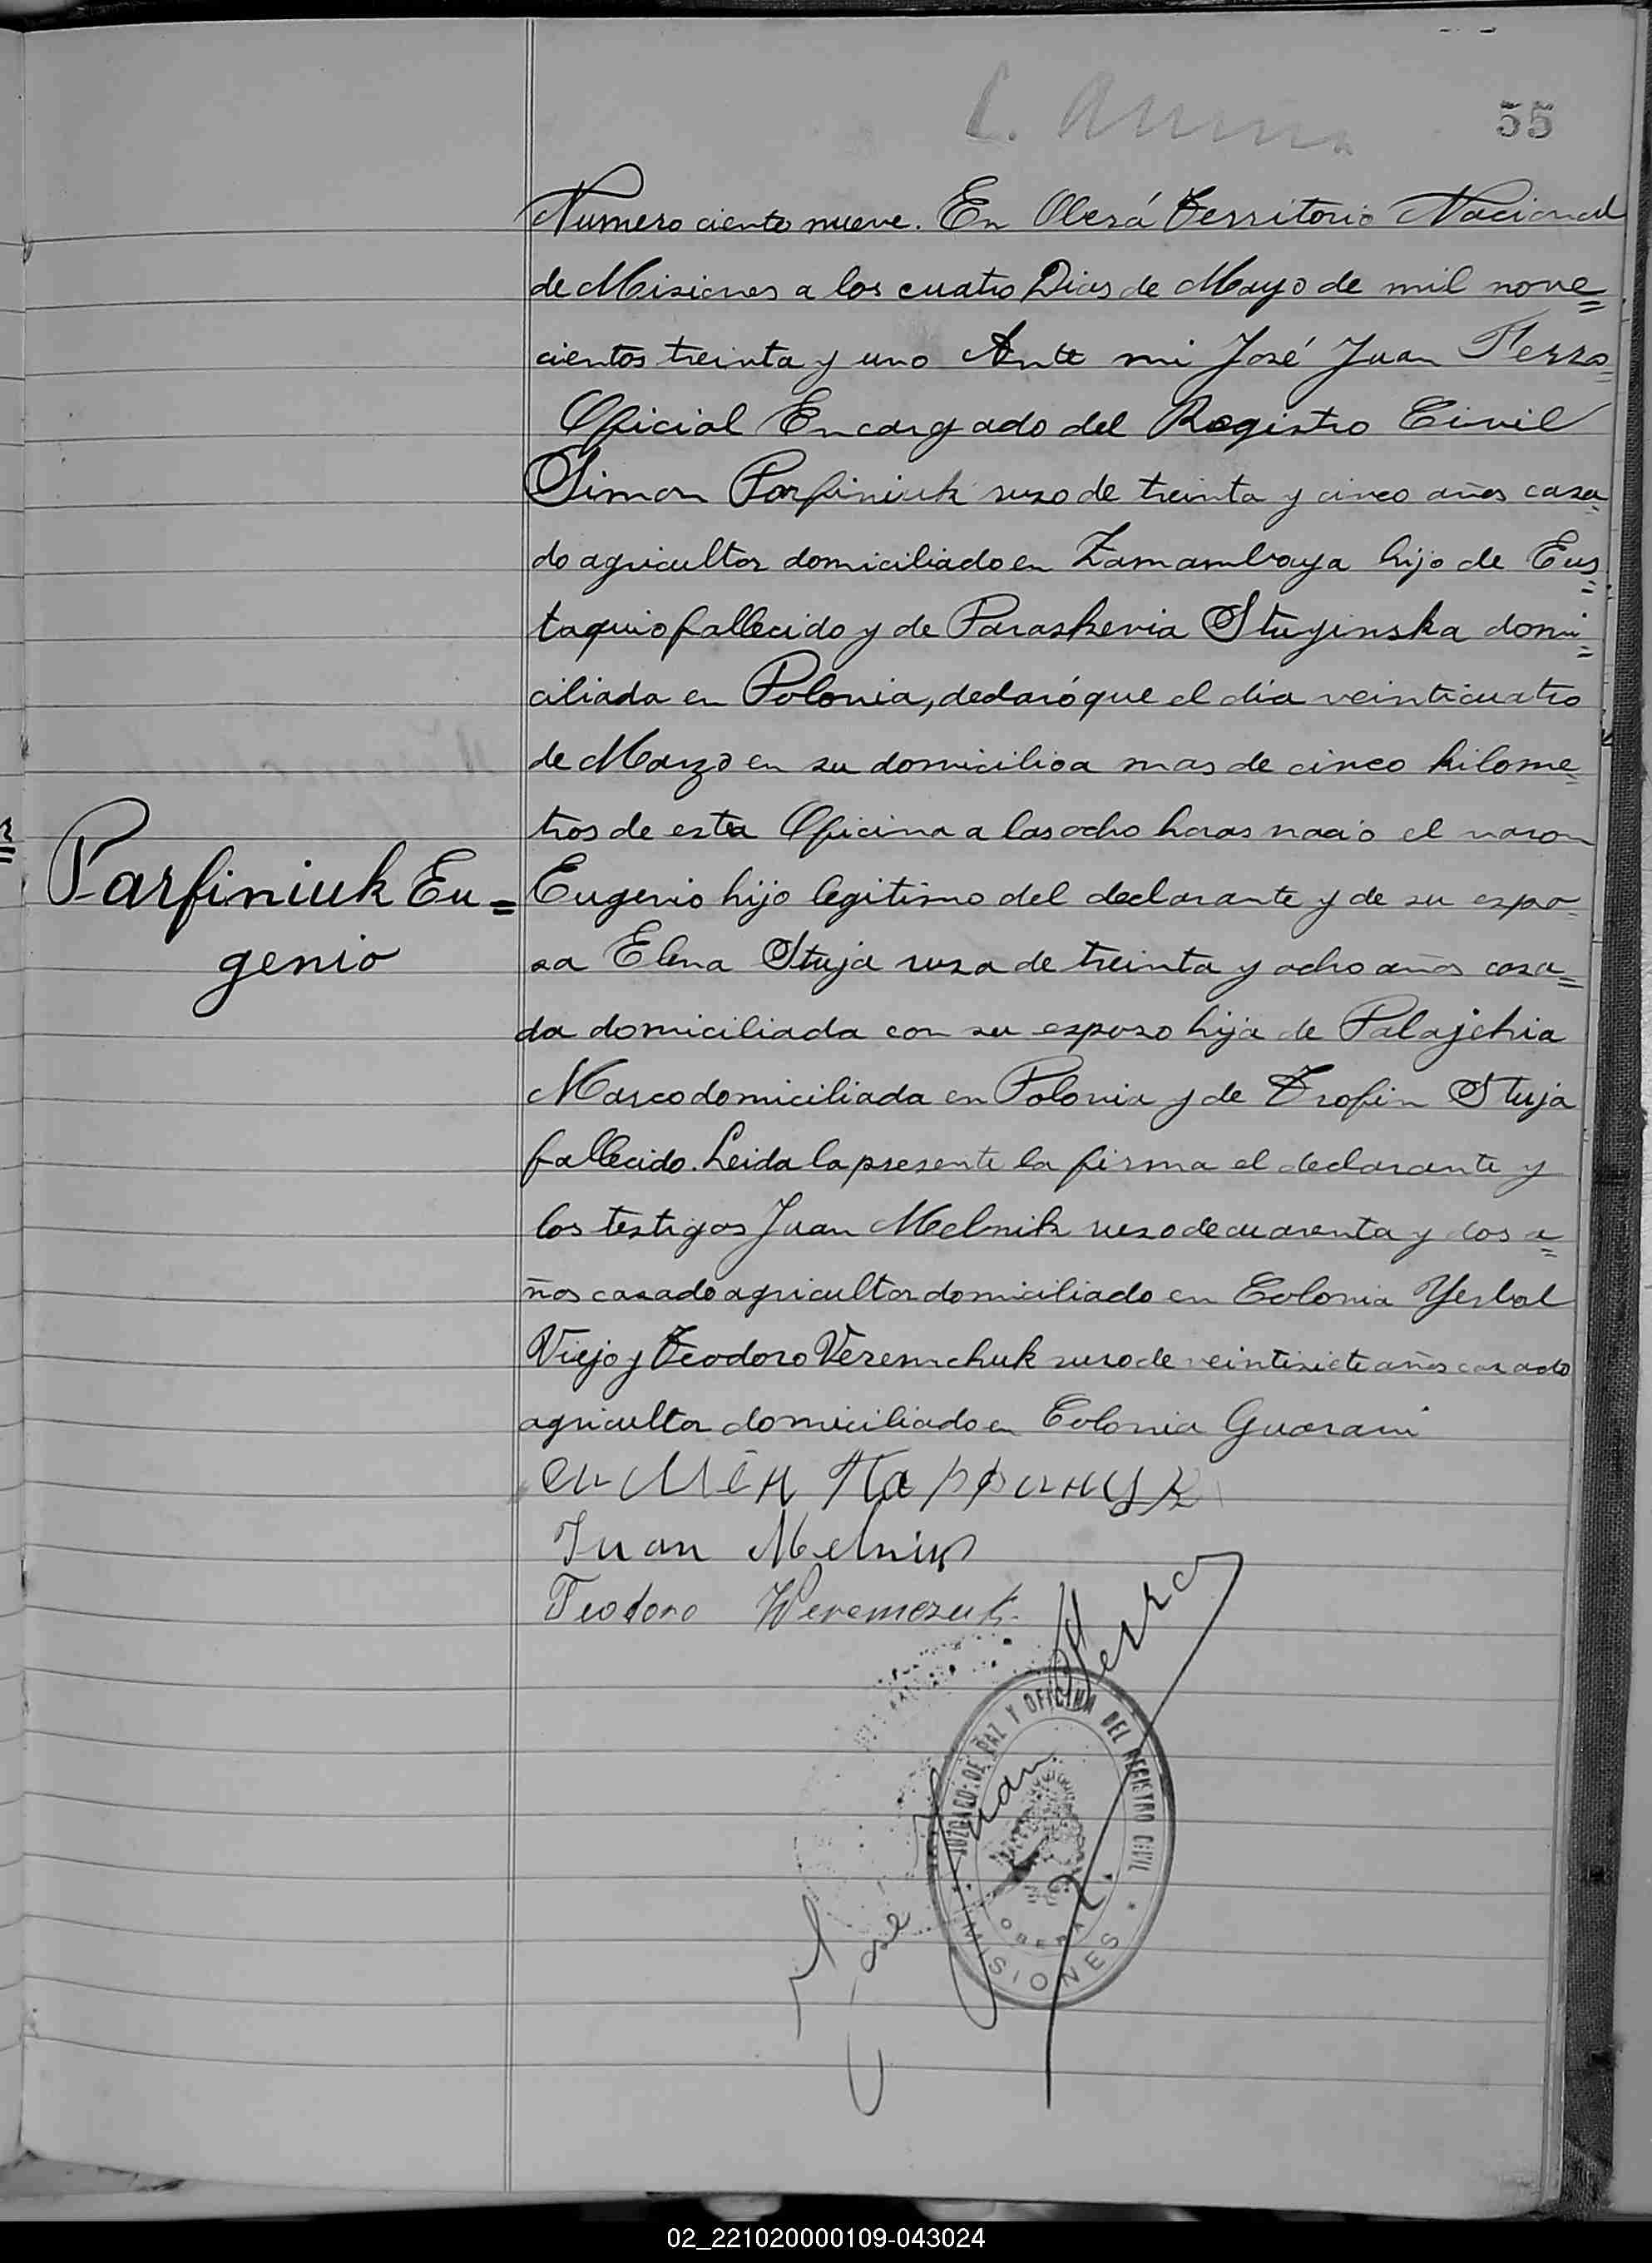 55
Numero ciento nueve. En Oberá Territorio Nacional
de Misiones a los cuatro Dias de Mayo de mil nove=
cientos treinta y uno Ante mi José Juan Ferro
Oficial Encargado del Registro Civil
Simon Parfiniuk ruso de treinta y cinco años casa=
do agricultor domiciliado en Zamambaya hijo de Eus=
taquio fallecido y de Paraskevia Stuyinska domi=
ciliada en Polonia, declaró que el dia veinticuatro
de Marzo en su domicilio a mas de cinco kilome=
tros de esta Oficina a las ocho horas nació el varon
Parfiniuk Eu=
genio
Eugenio hijo legitimo del declarante y de su espo=
sa Elena Stuja rusa de treinta y ocho años casa=
da domiciliada con su esposo hija de Palajchia
Marco domiciliada en Polonia y de Trofin Stuja
fallecido. Leida la presente la firma el declarante y
los testigos Juan Melnik ruso de cuarenta y dos a=
ños casado agricultor domiciliado en Colonia Yerbal
Viejo y Teodoro Veremchuk ruso de veintisiete años casado
agricultor domiciliado en Colonia Guarani
Парфинук
Juan Melnik
Teodoro Weremczuk
José Juan Ferro
JUZGADO DE PAZ Y OFICINA DEL REGISTRO CIVIL
OBERA
MISIONES
02_221020000109-043024